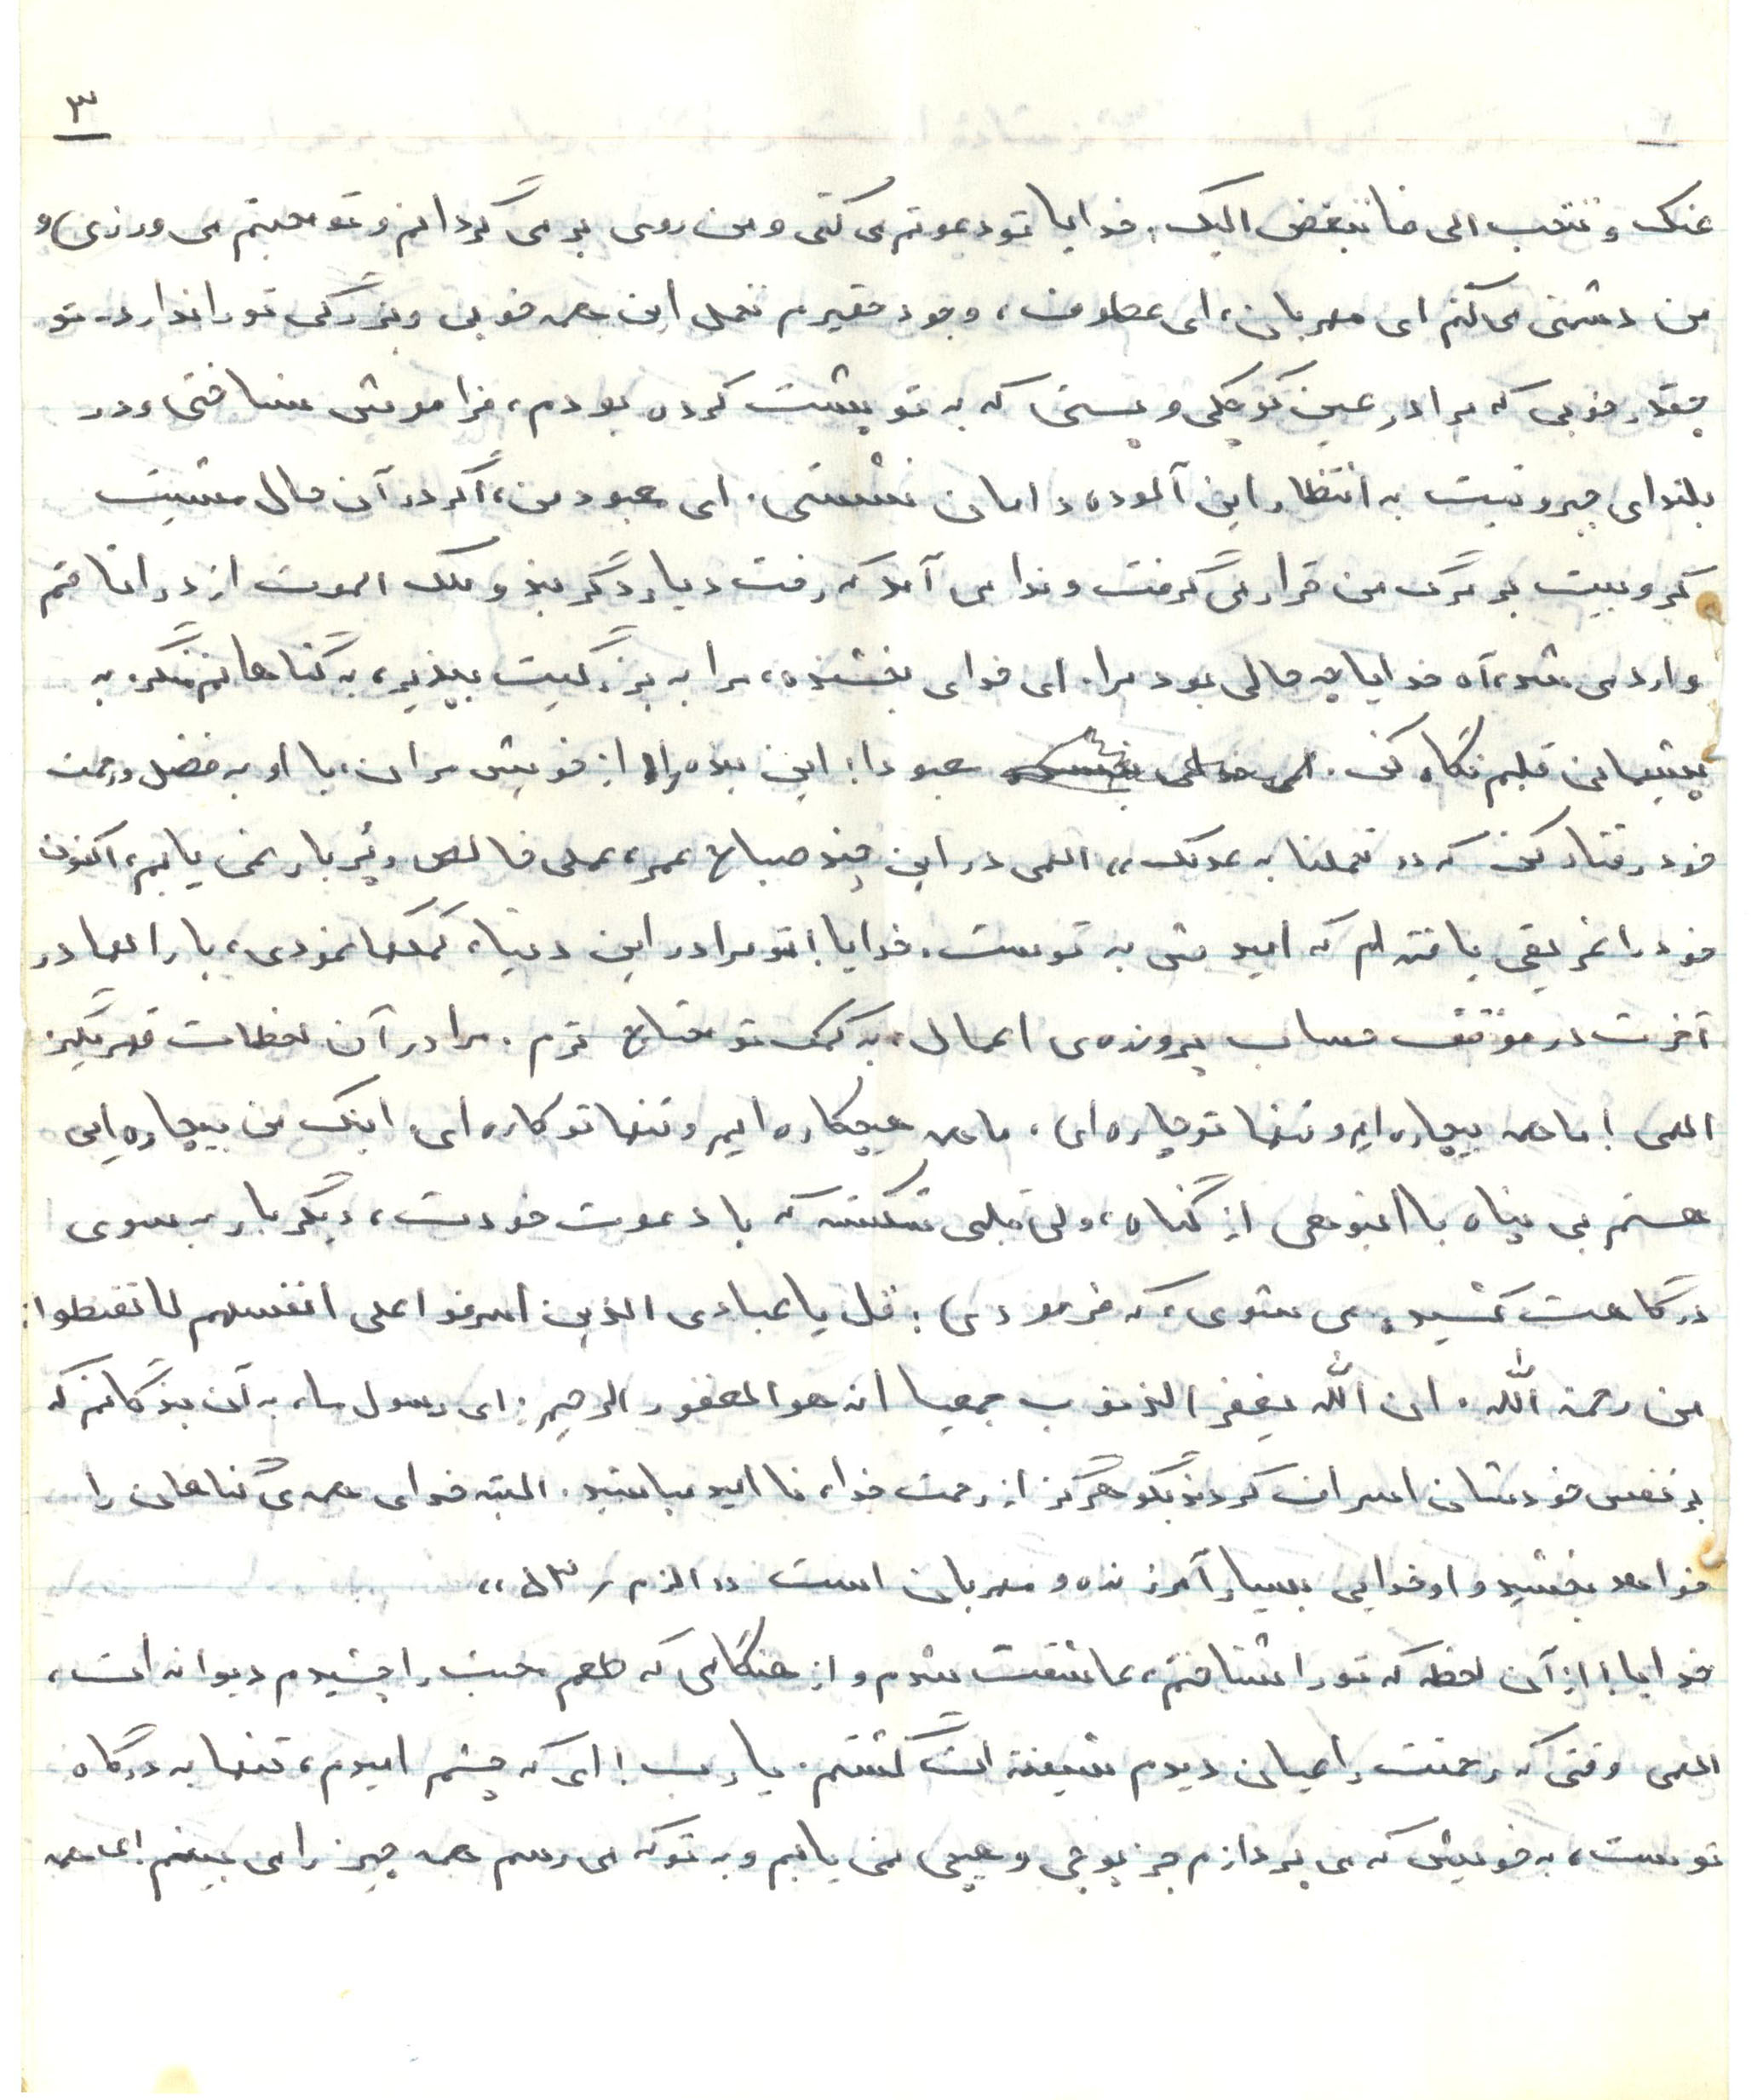 ۳
عنک و تتحبب الی فاتبغض الیک. خدایا تو دعوتم می کنی و من روی بر می گردانم و تو محبتم می ورزی و
من دشمنی می کنم ای مهربان، ای عطوف، وجود حقیرم تحمل این همه خوبی و بزرگی تو را ندارد. تو
چقدر خوبی که مرا در عین کوچکی و پستی که به تو پشت کرده بودم، فراموش نساختی و در
بلندای جبروتیت به انتظار این آلوده دامان نشستی. ای معبود من، اگر در آن حال مشیت
کبروبیت بر مرگ من قرار می گرفت و ندا می آمد که رخت دیار دگر بند و ملک الموت از در اتاقم
وارد می شد، آه خدایا چه حالی بود مرا. ای خدای بخشنده، مرا به بزرگیت بپذیر، به گناهانم منگر. به
پشیمانی قلبم نگاه کن. معبودا! این بنده را از خویش مران، با او به فضل و رحمت
خود رفتار کن که «تحملنا به عدلک» الهی در این چند صباح عمر، عملی خالص و پُربار نمی یابم، اکنون
خود را غریقی یافته ام که امیدش به توست. خدایا! تو مرا در این دنیا، کمکها نمودی، بار الها در
آخرت در موقف حساب پرونده ی اعمال، به کمک تو محتاج ترم. مرا در آن لحظات قهر مگیر
الهی! ما همه بیچاره ایم و تنها تو چاره ای. ما همه هیچکاره ایم و تنها تو کاره ای. اینک من بیچاره ایی
هستم بی پناه با انبوهی از گناه، ولی قلبی شکسته که با دعوت خودت، دیگر بار به سوی
درگاهت کشیده می شوی، که فرمودی: قل یا عبادی الذین اسرفوا علی انفسهم لا تقنطوا
من رحمة الله. ان الله یغفر الذنوب جمیعا انه هو الغفور الرحیم: ای رسول ما، به آن بندگانم که
بر نفس خودشان اسراف کردند بگو هرگز از رحمت خدا، نا امید مباشید. البته خدای همه ی گناهان را
خواهد بخشید و او خدایی بسیار آمرزنده و مهربان است «الزمر / ۵۳»
خدایا! از آن لحظه که تو را شناختم، عاشقت شدم و از هنگامی که طعم محبت را چشیدم دیوانه ات،
الهی وقتی که رحمتت را عیان دیدم شیفته ات گشتم. یا رب! ای که چشم امیدم، تنها به درگاه
توست، به خویش که می پردازم جز پوچی و هیچی نمی یابم و به تو که می رسم همه چیز را می بینم! ای همه